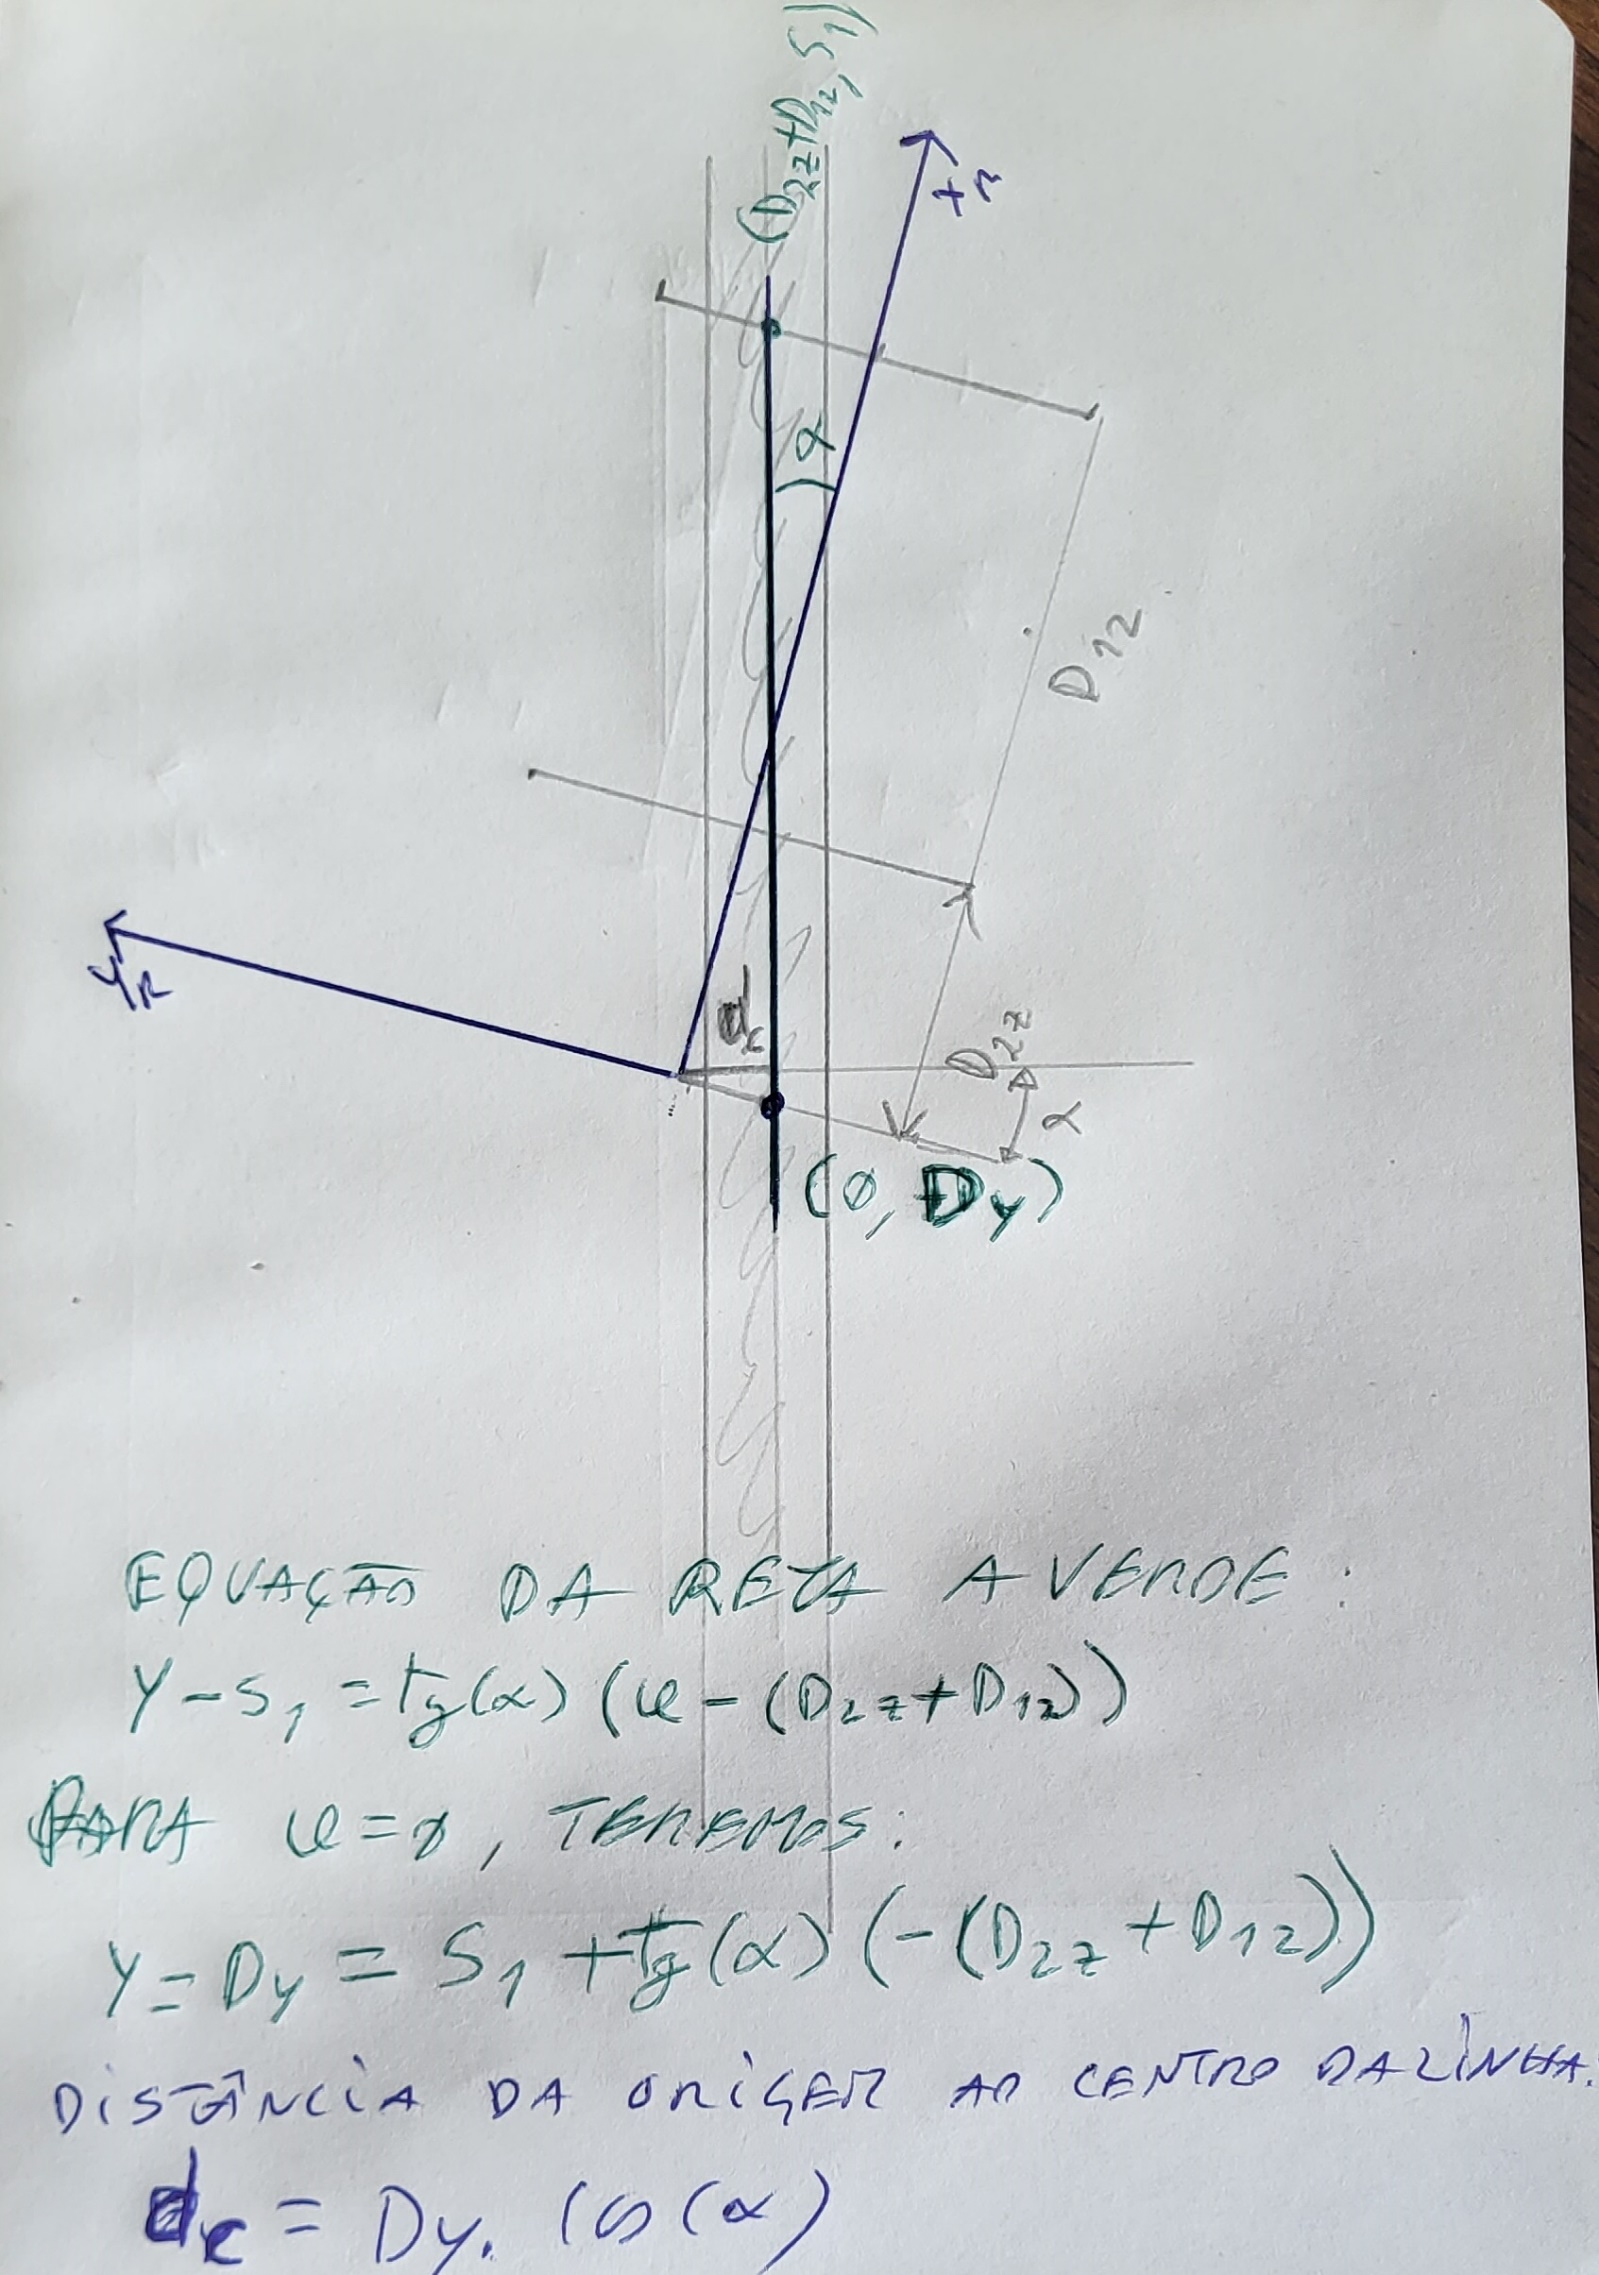 (D2z+D12, S1)
XR
α
D12
YR
dc
D2z
α
(0, Dy)
EQUAÇÃO DA RETA A VERDE:
Y-S1 = tg(α) (x-(D2z+D12))
PARA x=0, TEREMOS:
Y=Dy = S1 +tg(α) (-(D2z+D12))
DISTÂNCIA DA ORIGEM AO CENTRO DA LINHA:
dc = Dy. cos(α)